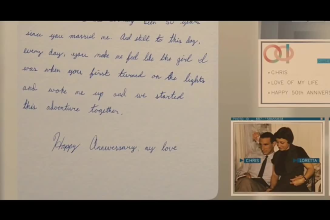 since you married me. And still to this day,
every day, you make me feel like the girl I
was when you first turned on the lights
and woke me up and we started
this adventure together.
Happy Anniversary my love
CHRIS
LOVE OF MY LIFE
HAPPY 50TH ANNIVER
CHRIS
LORETTA